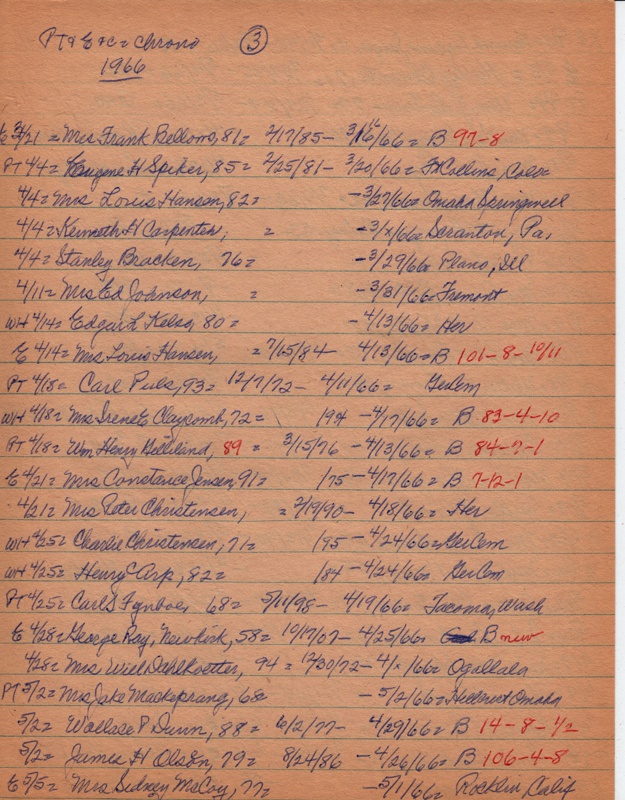 PT & E & C = Chrono ③
1966
E 3/21 = Mrs Frank Bellows, 81 = 2/17/85 - 3/16/66 = B 97-8
PT 4/4 = Eugene H Spiker, 85 = 2/25/81 - 3/20/66 = Ft Collins, Colo
4/4 = Mrs Louis Hansen, 82 = - 3/27/66 = Omaha Springwell
4/4 = Kenneth H Carpenter, = - 3/x/66 = Scranton, Pa,
4/4 = Stanley Bracken, 76 = - 3/29/66 = Plano, Ill
4/11 = Mrs Ed Johnson, = - 3/31/66 = Fremont
WH 4/14 = Edgar L Kelso, 80 = - 4/13/66 = Her
E 4/14 = Mrs Louis Hansen, = 7/15/84 - 4/13/66 = B 101-8-10/11
PT 4/18 = Carl Puls, 93 = 12/7/72 - 4/11/66 = GerCem
WH 4/18 = Mrs Irene E Claycomb, 72 = 194 - 4/17/66 = B 83-4-10
PT 4/18 = Wm Henry Gilliland, 89 = 3/15/76 - 4/13/66 = B 84-7-1
E 4/21 = Mrs Constance Jensen, 91 = /75 - 4/17/66 = B 7-12-1
4/21 = Mrs Peter Christensen, = 2/19/90 - 4/18/66 = Her
WH 4/25 = Charlie Christensen, 71 = /95 - 4/24/66 = GerCem
WH 4/25 = Henry C Arp, 82 = /84 - 4/24/66 = GerCem
PT 4/25 = Carl S Fynboe, 68 = 5/11/98 - 4/19/66 = Tacoma, Wash
E 4/28 = George Ray, Newkirk, 58 = 10/17/07 - 4/25/66 = B new
4/28 = Mrs Will Dahlkoetter, 94 = 12/30/72 - 4/x/66 = Ogallala
PT 5/2 = Mrs Jake Mackeprang, 68 - 5/2/66 = Hillcrest Omaha
5/2 = Wallace P Dunn, 88 = 6/2/77 - 4/29/66 = B 14-8-1/2
5/2 = James H Olson, 79 = 8/24/86 - 4/26/66 = B 106-4-8
E 5/5 = Mrs Sidney McCoy, 77 = - 5/1/66 = Rocklin, Calif